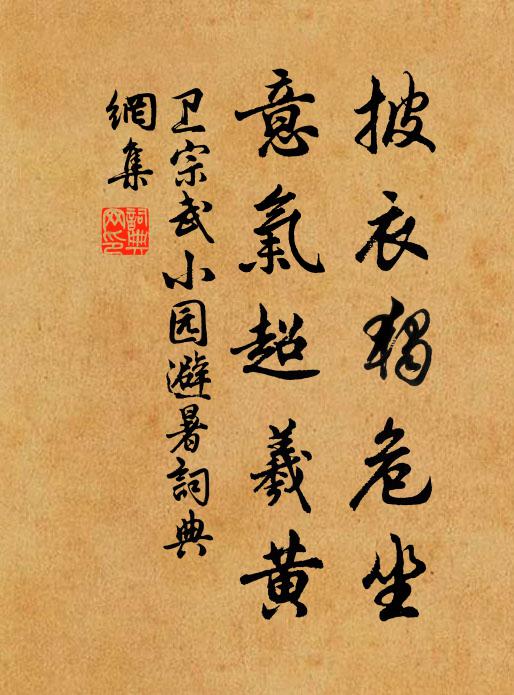 披衣独危坐
意氣超羲黄
卫宗武小园避暑詞典
網集
詞典
网印